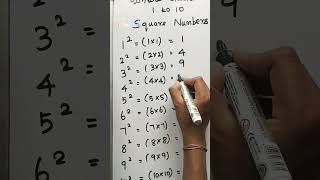 1 to 10
Square Numbers
1² = (1×1) = 1
2² = (2×2) = 4
3² = (3×3) = 9
4² = (4×4) =
5² = (5×5)
6² = (6×6)
7² = (7×7)
8² = (8×8)
9² = (9×9) =
= (10×10) =
3²
4²
5²
6²